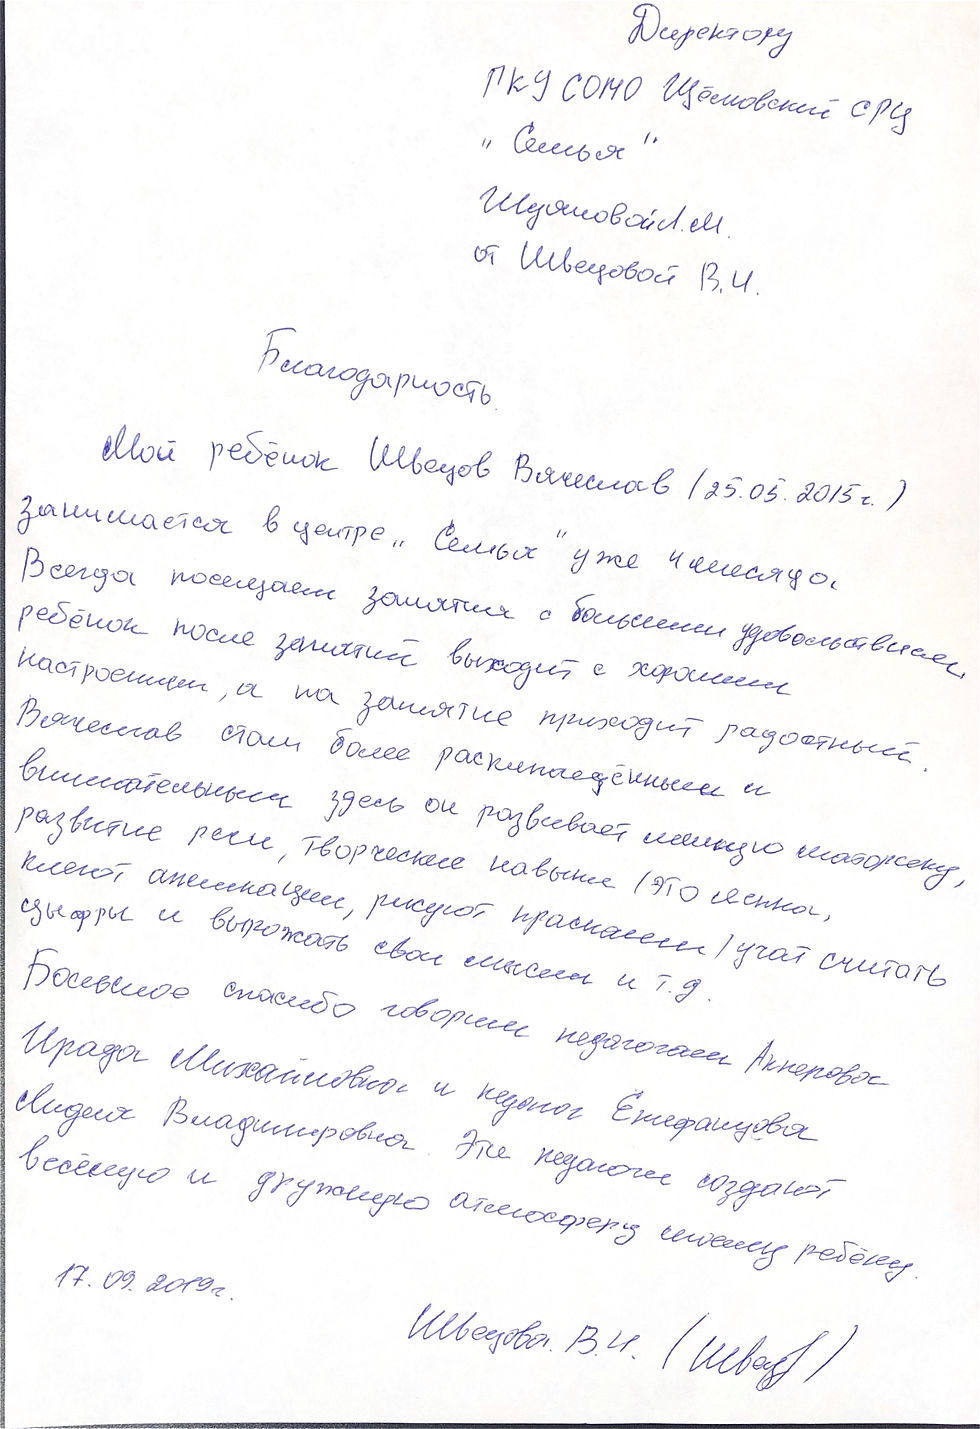 Директору
ГКУ СОМО Щёлковский СРЦ
„ Семья "
Шуяновой Л.М.
от Швецовой В.И.
Благодарность.
Мой ребёнок Швецов Вячеслав (25.05.2015г.)
занимается в центре „ Семья " уже 4 месяца.
Всегда посещаем занятия с большим удовольствием,
ребёнок после занятий выходит с хорошим
настроением, а на занятие приходит радостный.
Вячеслав стал более раскрепощённым и
внимательным здесь он развивает мелкую моторику,
развитие речи, творческие навыки (это лепка,
клеют аппликации, рисуют красками) учат считать
цыфры и выражать свои мысли и т.д.
Большое спасибо говорим педагогам Аккерова
Ирада Михайловна и педагог Епифанцова
Лидия Владимировна. Эти педагоги создают
весёлую и дружную атмосферу моему ребёнку.
17.09.2019г.
Швецова В.И. (Швец)